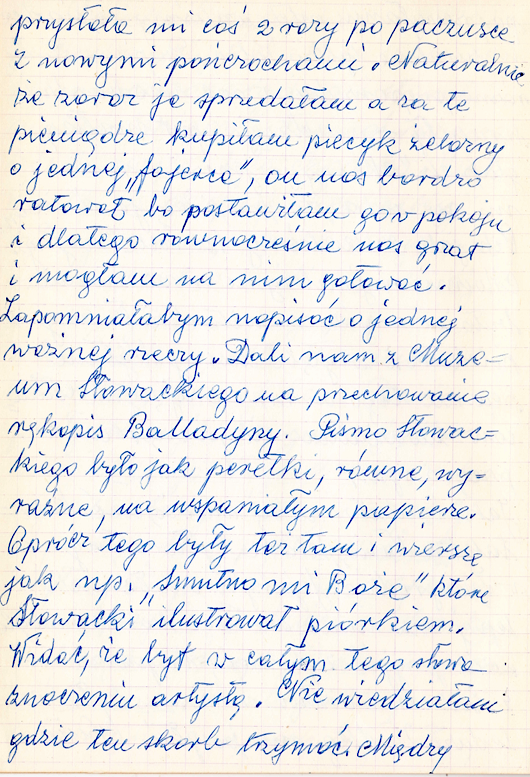 przysłała mi coś 2 razy po paczuszce
z nowymi pończochami. Naturalnie
że zaraz je sprzedałam a za te
pieniądze kupiłam piecyk żelazny
o jednej „fajerce”, on nas bardzo
ratował bo postawiłam go w pokoju
i dlatego równocześnie nas grzał
i mogłam na nim gotować.
Zapomniałabym napisać o jednej
ważnej rzeczy. Dali nam z Muze=
um Słowackiego na przechowanie
rękopis Balladyny. Pismo Słowac=
kiego było jak perełki, równe, wy=
raźne, na wspaniałym papierze.
Oprócz tego były też tam i wiersze
jak np. „Smutno mi Boże” które
Słowacki ilustrował piórkiem.
Widać, że był w całym tego słowa
znaczeniu artystą. Nie wiedziałam
gdzie ten skarb trzymać. Między